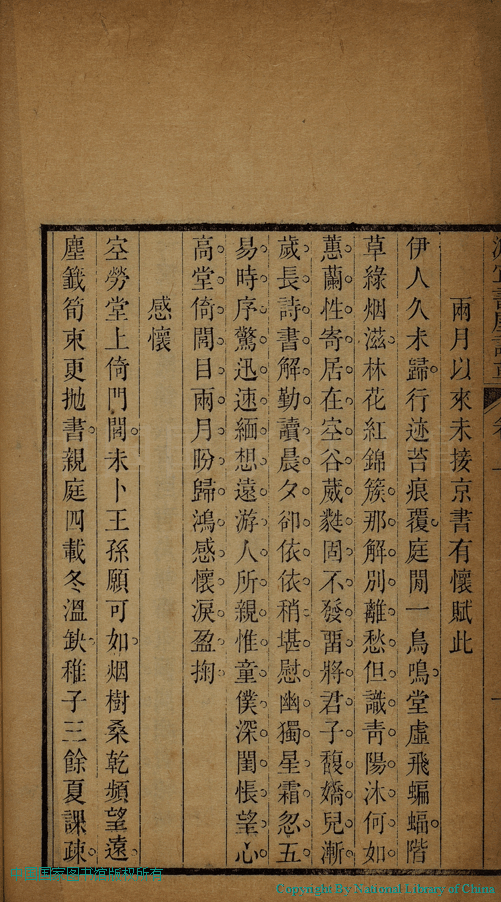 兩月以來未接京書有懷賦此
伊人久未歸。行迹苔痕覆。庭閒一鳥鳴。堂虛飛蝙蝠。階
草綠烟滋。林花紅錦簇。那解別離愁。但識靑陽沐。何如
蕙蘭性。寄居在空谷。葳蕤固不發。畱將君子馥。嬌兒漸
歲長。詩書解勤讀。晨夕卻依依。稍堪慰幽獨。星霜忽五
易。時序驚迅速。緬想遠游人。所親惟童僕。深閨悵望心。
高堂倚閭目。兩月盼歸鴻。感懷淚盈掬。
感懷
空勞堂上倚門閭。未卜王孫願可如。烟樹桑乾頻望遠。
塵籤筍束更拋書。親庭四載冬溫缺。稚子三餘夏課疎。
中国国家图书馆版权所有
Copyright By National Library of China